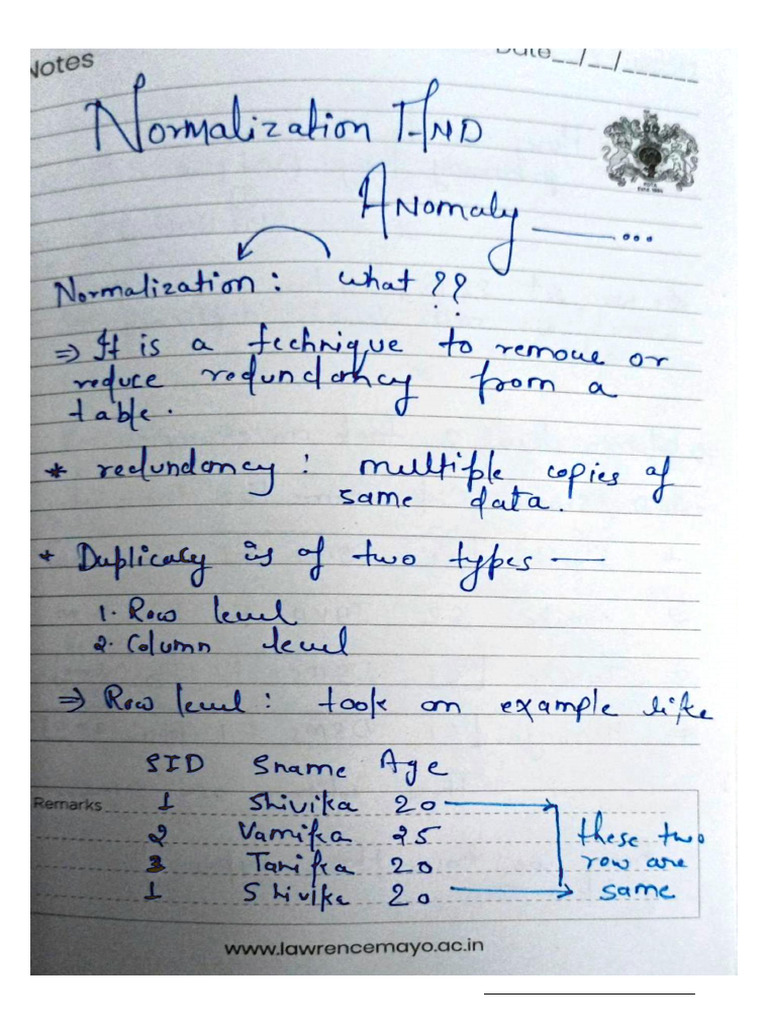 Notes
Date__/__/______
Normalization AND
Anomaly ——...
Normalization : what ??
⇒ It is a technique to remove or
reduce redundancy from a
table.
* redundancy : multiple copies of
same data.
* Duplicacy is of two types —
1. Row level
2. Column level
⇒ Row level : took an example like
SID Sname Age
Remarks 1 Shivika 20
2 Vamika 25 these two
3 Tanika 20 row are
1 Shivika 20 same
www.lawrencemayo.ac.in